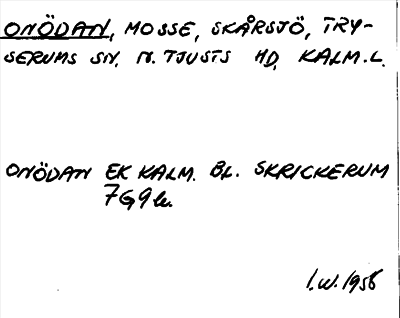 ONÖDAN, MOSSE, SKÅRSJÖ, TRY-
SERUMS SN, N. TJUSTS HD, KALM. L.
ONÖDAN EK KALM. BL. SKRICKERUM
7G9b.
I.W. 1958